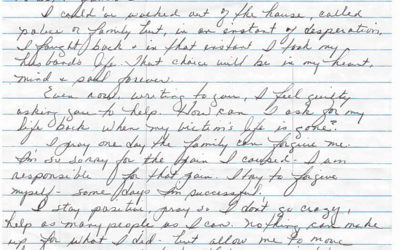 I could've walked out of the house, called
police or family but, in an instant of desperation,
I fought back & in that instant I took my
husbands life. That choice will be in my heart,
mind & soul forever.
Even now, writing to you, I feel guilty
asking you to help. How can I ask for my
life back when my victim's life is gone?
I pray one day the family can forgive me.
I'm so sorry for the pain I caused - I am
responsible for that pain. I try to forgive
myself - some days I'm successful.
I stay positive, pray so I don't go crazy,
help as many people as I can. Nothing can make
up for what I did - but allow me to move